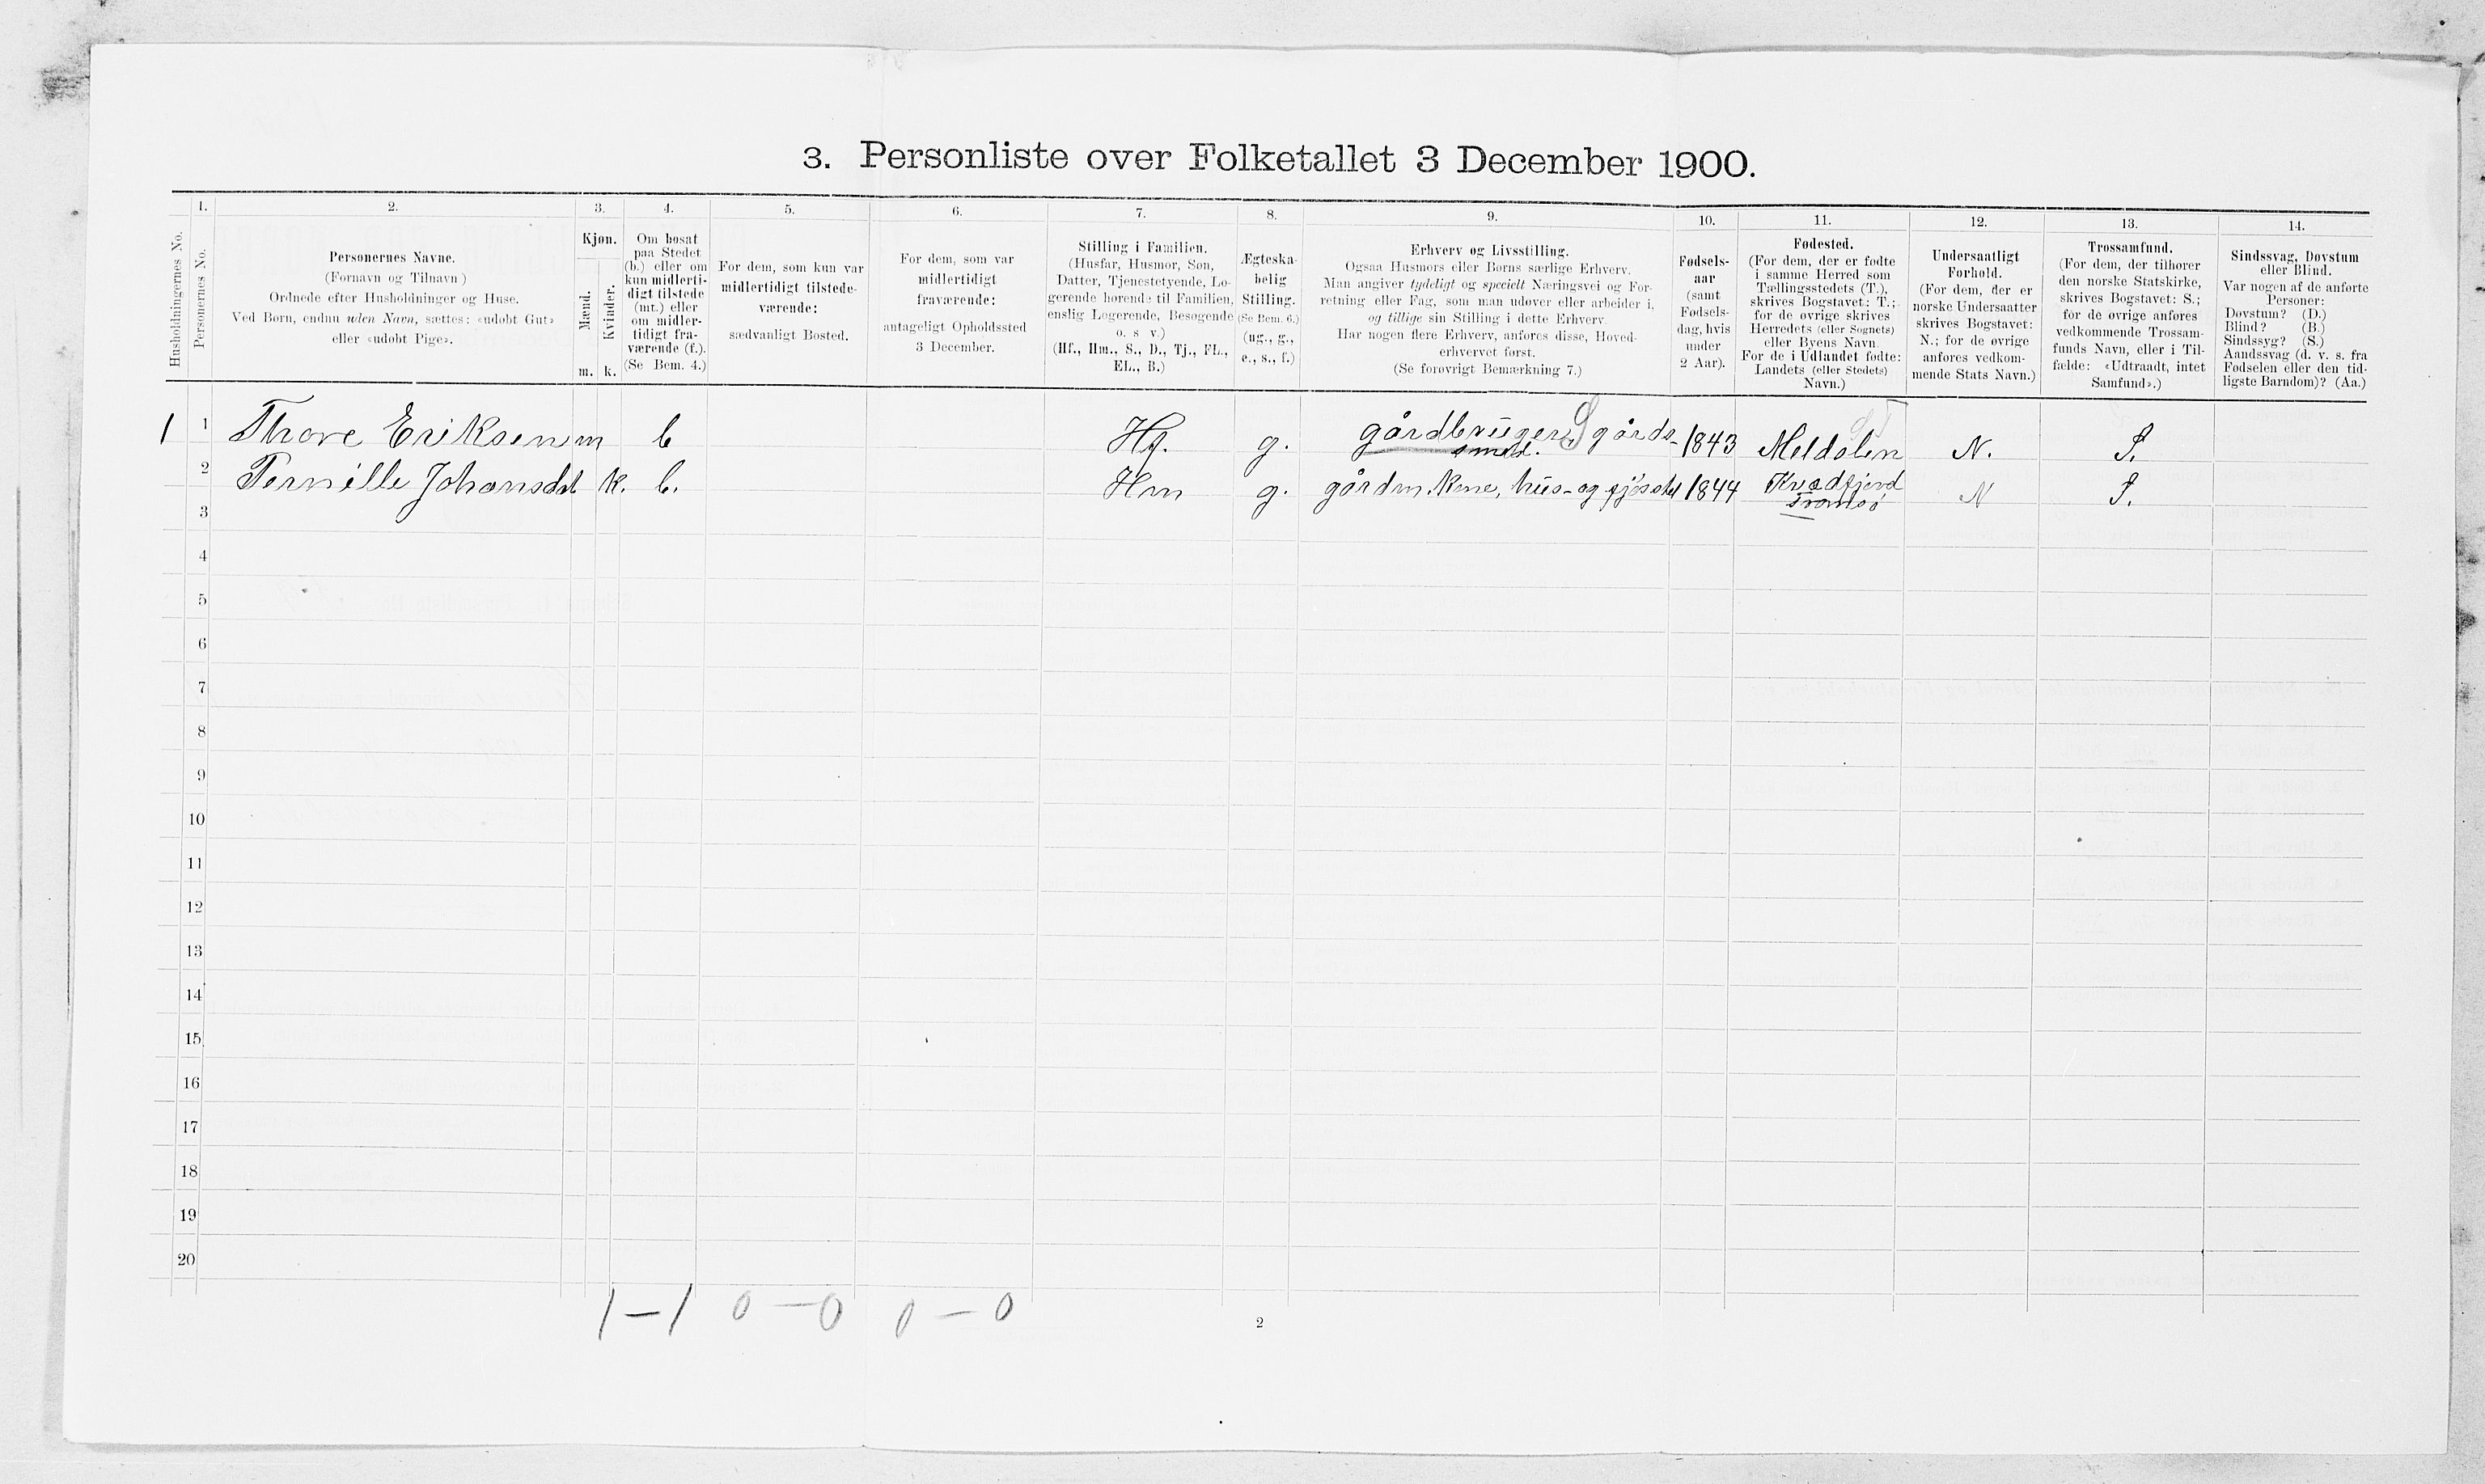 3. Personliste over Folketallet 3 December 1900.
Husholdningernes No.
1.
Personernes No.
2.
Personernes Navne.
(Fornavn og Tilnavn.)
Ordnede efter Husholdninger og Huse.
Ved Børn, endnu uden Navn, sættes: «udøbt Gut»
eller «udøbt Pige».
3.
Kjøn.
Mænd.
Kvinder.
m. k.
4.
Om bosat
paa Stedet
(b.) eller om
kun midlerti-
digt tilstede
(mt.) eller
om midler-
tidigt fra-
værende (f.).
(Se Bem. 4.)
5.
For dem, som kun var
midlertidigt tilstede-
værende:
sædvanligt Bosted.
6.
For dem, som var
midlertidigt
fraværende:
antageligt Opholdssted
3 December.
7.
Stilling i Familien.
(Husfar, Husmor, Søn,
Datter, Tjenestetyende, Lo-
gerende hørende til Familien,
enslig Logerende, Besøgende
o. s. v.)
(Hf., Hm., S., D., Tj., FL.,
EL., B.)
8.
Ægteska-
belig
Stilling.
(Se Bem. 6.)
(ug., g.,
e., s., f.)
9.
Erhverv og Livsstilling.
Ogsaa Husmors eller Børns særlige Erhverv.
Man angiver tydeligt og specielt Næringsvei og For-
retning eller Fag, som man udøver eller arbeider i,
og tillige sin Stilling i dette Erhverv.
Har nogen flere Erhverv, anføres disse, Hoved-
erhvervet først.
(Se forøvrigt Bemærkning 7.)
10.
Fødsels-
aar
(samt
Fødsels-
dag, hvis
under
2 Aar).
11.
Fødested.
(For dem, der er fødte
i samme Herred som
Tællingsstedets (T.),
skrives Bogstavet: T.;
for de øvrige skrives
Herredets (eller Sognets)
eller Byens Navn.
For de i Udlandet fødte:
Landets (eller Stedets)
Navn.)
12.
Undersaatligt
Forhold.
(For dem, der er
norske Undersaatter
skrives Bogstavet:
N.; for de øvrige
anføres vedkom-
mende Stats Navn.)
13.
Trossamfund.
(For dem, der tilhører
den norske Statskirke,
skrives Bogstavet: S.;
for de øvrige anføres
vedkommende Trossam-
funds Navn, eller i Til-
fælde: «Udtraadt, intet
Samfund».)
14.
Sindssvag, Døvstum
eller Blind.
Var nogen af de anførte
Personer:
Døvstum? (D.)
Blind? (B.)
Sindssyg? (S.)
Aandssvag (d. v. s. fra
Fødselen eller den tid-
ligste Barndom)? (Aa.)
1 1 Thore Eriksen m b Hf. g. gårdbruger, S gårds- 1843 Meldalen N. S.
smed.
2 Pernille Johansdat k. b. Hm g. gårdm. kone, hus- og fjøsstel 1844 Kvædfjord N S.
Tromsø
3
4
5
6
7
8
9
10
11
12
13
14
15
16
17
18
19
20
1 – 1 0 – 0 0 – 0
2